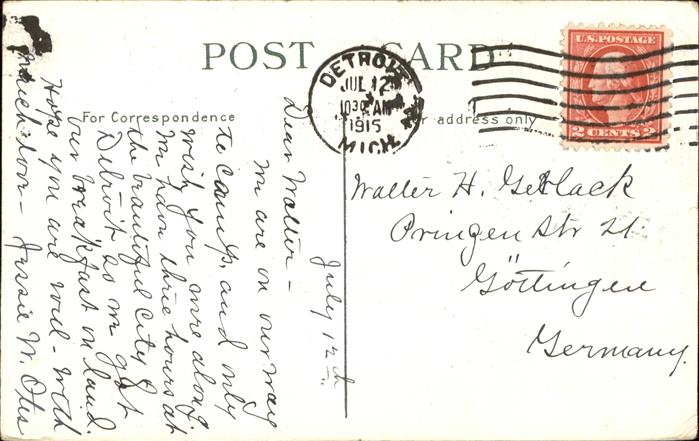 POST CARD
For Correspondence
address only
DETROIT
JUL 12
1030 AM
1915
MICH.
U.S. POSTAGE
2 CENTS 2
Walter H.
Prinzen Str 21
Göttingen
Germany.
July 12th
Dear Walter -
We are on our way
to camp, and only
wish you were along.
We had three hours at
the beautiful city of
Detroit so we got
our breakfast on land.
Hope you are well - with
much love - Jessie W. Otis